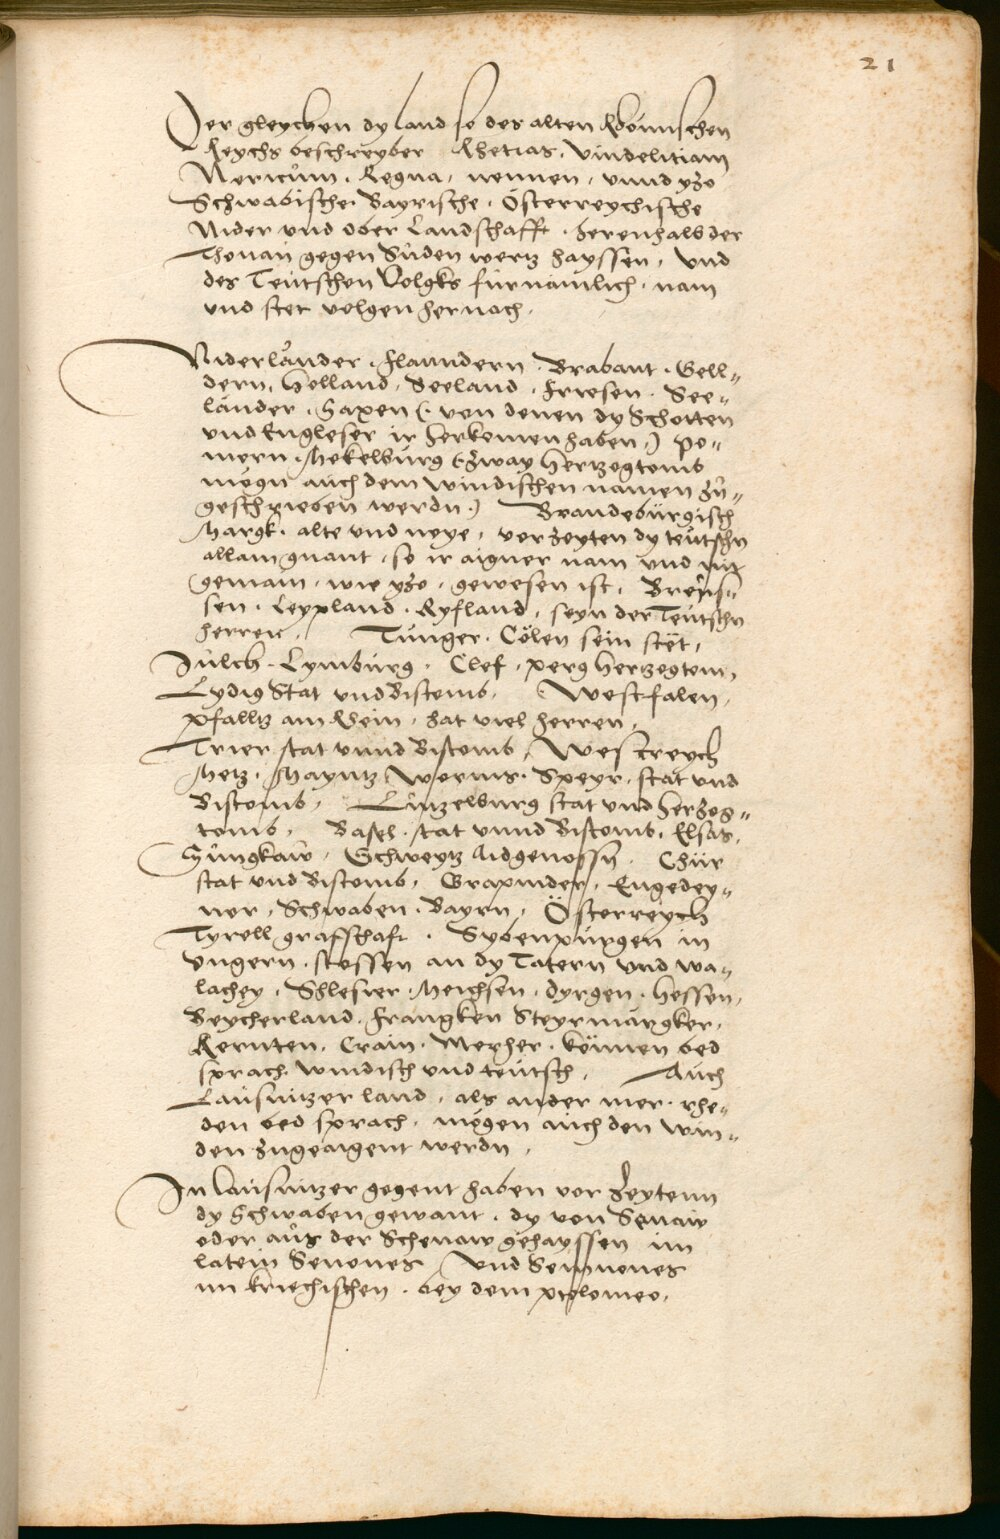 21
Der gleychen dy land so des alten Römischen
Reychs beschreyber Rhetias, Vindelitiam
Noricům. Regna, nennen, vnnd yzo
Schwabische. Bayrische. Österreychische
Nider vnd ober Landschafft. herenhalb der
Thonaẅ gegen Sůden wertz hayssen, vnd
des Teütschen Volgks fürnämlich, nam
vnd stet volgen hernach.
Niderlånder. Flanndern. Brabant. Gell„
dern. Holland. Seeland. Friesen. See„
länder. Saxen (. von denen dy Schotten
vnd Engleser ir herkomen haben.) Po„
mern. Mekelbürg (. zway Hertzogtomb
mögn aüch dem windischen namen zů„
geschrieben werdn.) Brandebürgisch
Margk. alte vnd neye, vorzeyten dy teütschn
allain gnant, so ir aigner nam vnd nit
gemain, wie yzo, gewesen ist, Breüs„
sen. Leyfland. Ryfland, seyn der Teütschn
herren, Tünger. Cölen sein stët,
Jülch. Lymbürg. Clef, perg Hertzogtom,
Lydig Stat vnd Bistomb. Westfalen,
Pfalltz am Rhein, hat viel herren,
Trier stat vnnd Bistomb, Westreych
Metz. Mayntz Worms. Speyr. stat vnd
Bistomb, Lützelbürg stat vnd herzog„
tomb, Basel. stat vnnd Bistomb, Elsas,
Süngkaẅ, Schweytz Aidgenossn. Chür
stat vnd Bistomb, Grapünder, Engedey„
ner, Schwaben. Bayrn, Österreych
Tyroll grafschaft. Sybenpürgen in
Vngern. stossen an dy Tatern vnd wa„
lachey, Schlesier. Meichsen. dyrgen. Hessen,
Beycherland. Frangken Steyrmärgker,
Kernten. Crain. Merher. können bed
sprach. windisch vnd teütsch, Aüch
Laüsnitzer land, als ander mer. rhe„
den bed sprach, mögen aüch den win„
den zugeaigent werdn,
In Laüsnitzer gegent haben vor Zeytenn
dy Schwaben gewant, dy von Senaẅ
oder aůs der Schenaw gehayssen im
latein Senones, Vnd Semnones
im kriechischen. bey dem ptolomeo,